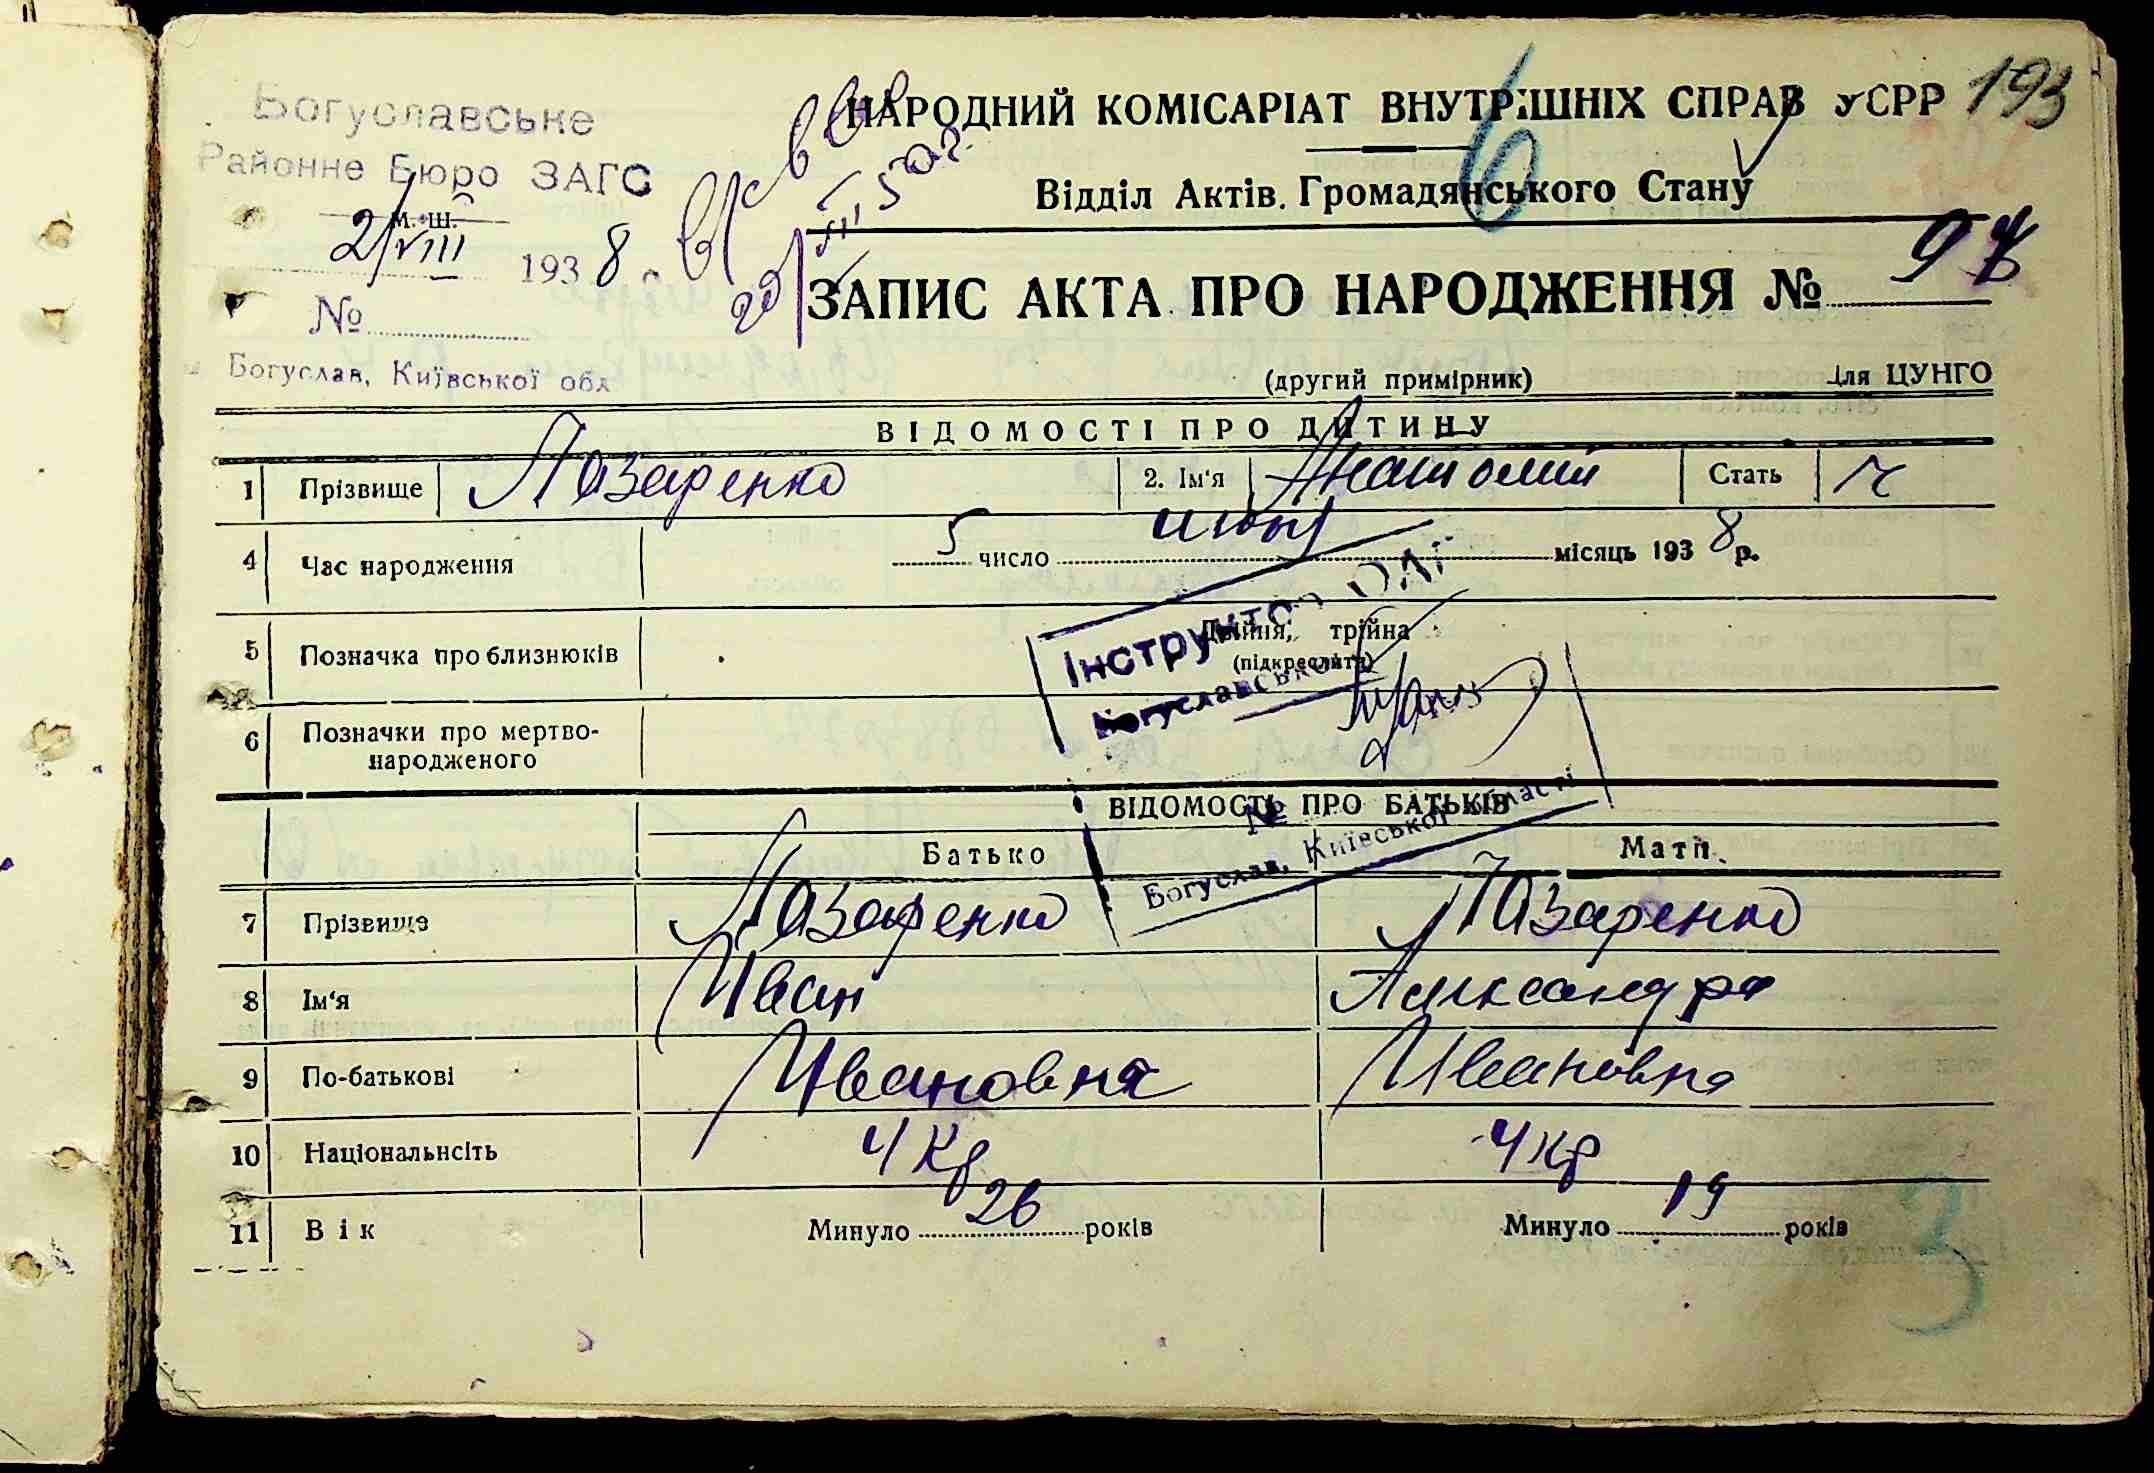 193
Богуславське
Районне Бюро ЗАГС
м. ш.
2/VIII 1938
№
Богуслав, Київської обл
НАРОДНИЙ КОМІСАРІАТ ВНУТРІШНІХ СПРАВ УСРР
Відділ Актів Громадянського Стану
ЗАПИС АКТА ПРО НАРОДЖЕННЯ №
(другий примірник) Для ЦУНГО
ВІДОМОСТІ ПРО ДИТИНУ
1 Прізвище Лазаренко 2. Ім'я Анатолий Стать ч
4 Час народження 5 число місяць 1938 р.
5 Позначка про близнюків Двійня, трійна
(підкреслити)
6 Позначки про мертво-
народженого
Інструктор
Богуславського
№
Богуслав, Київської області
ВІДОМОСТІ ПРО БАТЬКІВ
Батько Мати
7 Прізвище Лазаренко Лазаренко
8 Ім'я Иван Александра
9 По-батькові Ивановна Ивановна
10 Національнсіть Укр Укр
11 Вік Минуло 26 років Минуло 19 років
3